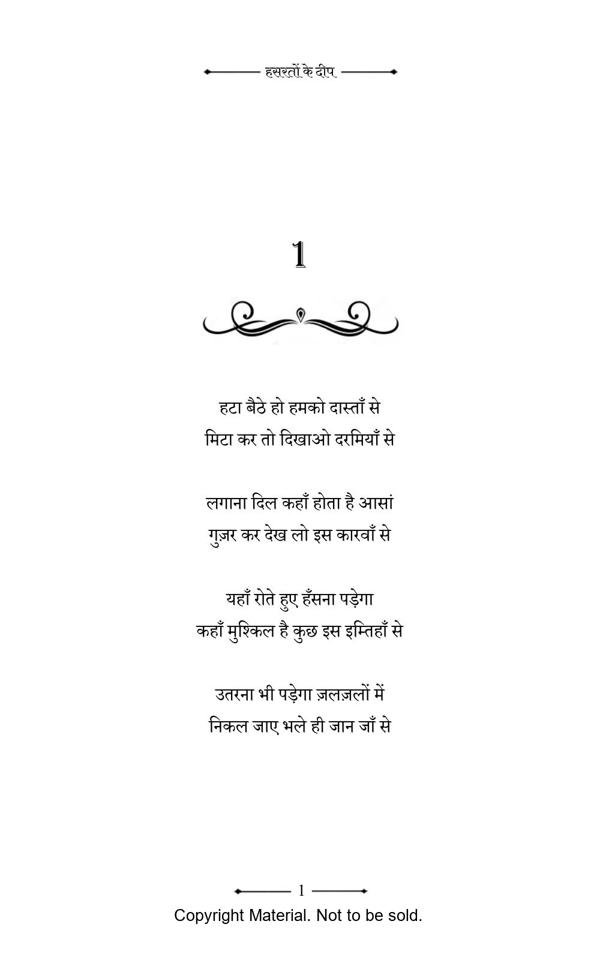 हसरतों के दीप
1
हटा बैठे हो हमको दास्ताँ से
मिटा कर तो दिखाओ दरमियाँ से
लगाना दिल कहाँ होता है आसां
गुज़र कर देख लो इस कारवाँ से
यहाँ रोते हुए हँसना पड़ेगा
कहाँ मुश्किल है कुछ इस इम्तिहाँ से
उतरना भी पड़ेगा ज़लज़लों में
निकल जाए भले ही जान जाँ से
1
Copyright Material. Not to be sold.